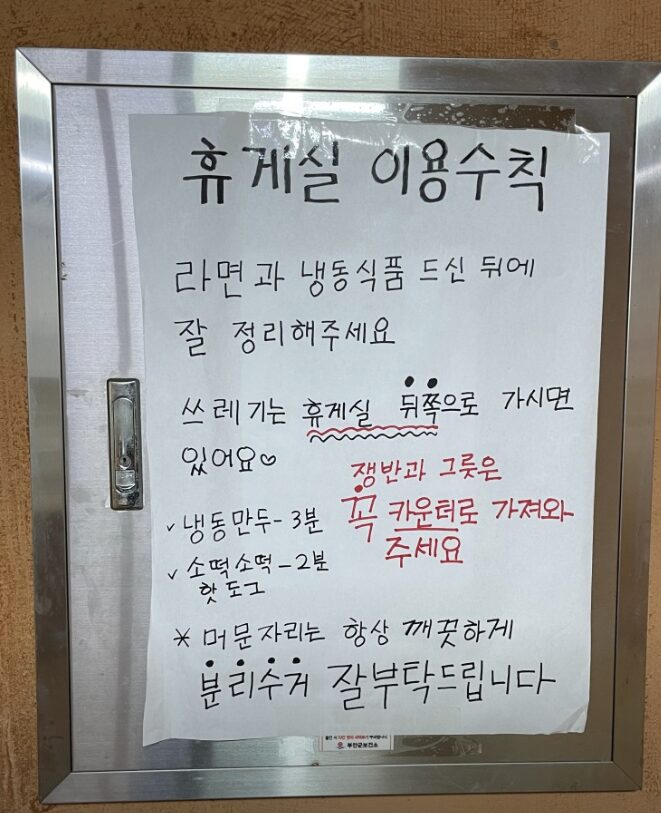 휴게실 이용수칙
라면과 냉동식품 드신 뒤에
잘 정리해주세요
쓰레기는 휴게실 뒤쪽으로 가시면
있어요♡
쟁반과 그릇은
꼭 카운터로 가져와
주세요
✓ 냉동만두-3분
✓ 소떡소떡-2분
핫도그
* 머문자리는 항상 깨끗하게
분리수거 잘부탁드립니다
부안군보건소